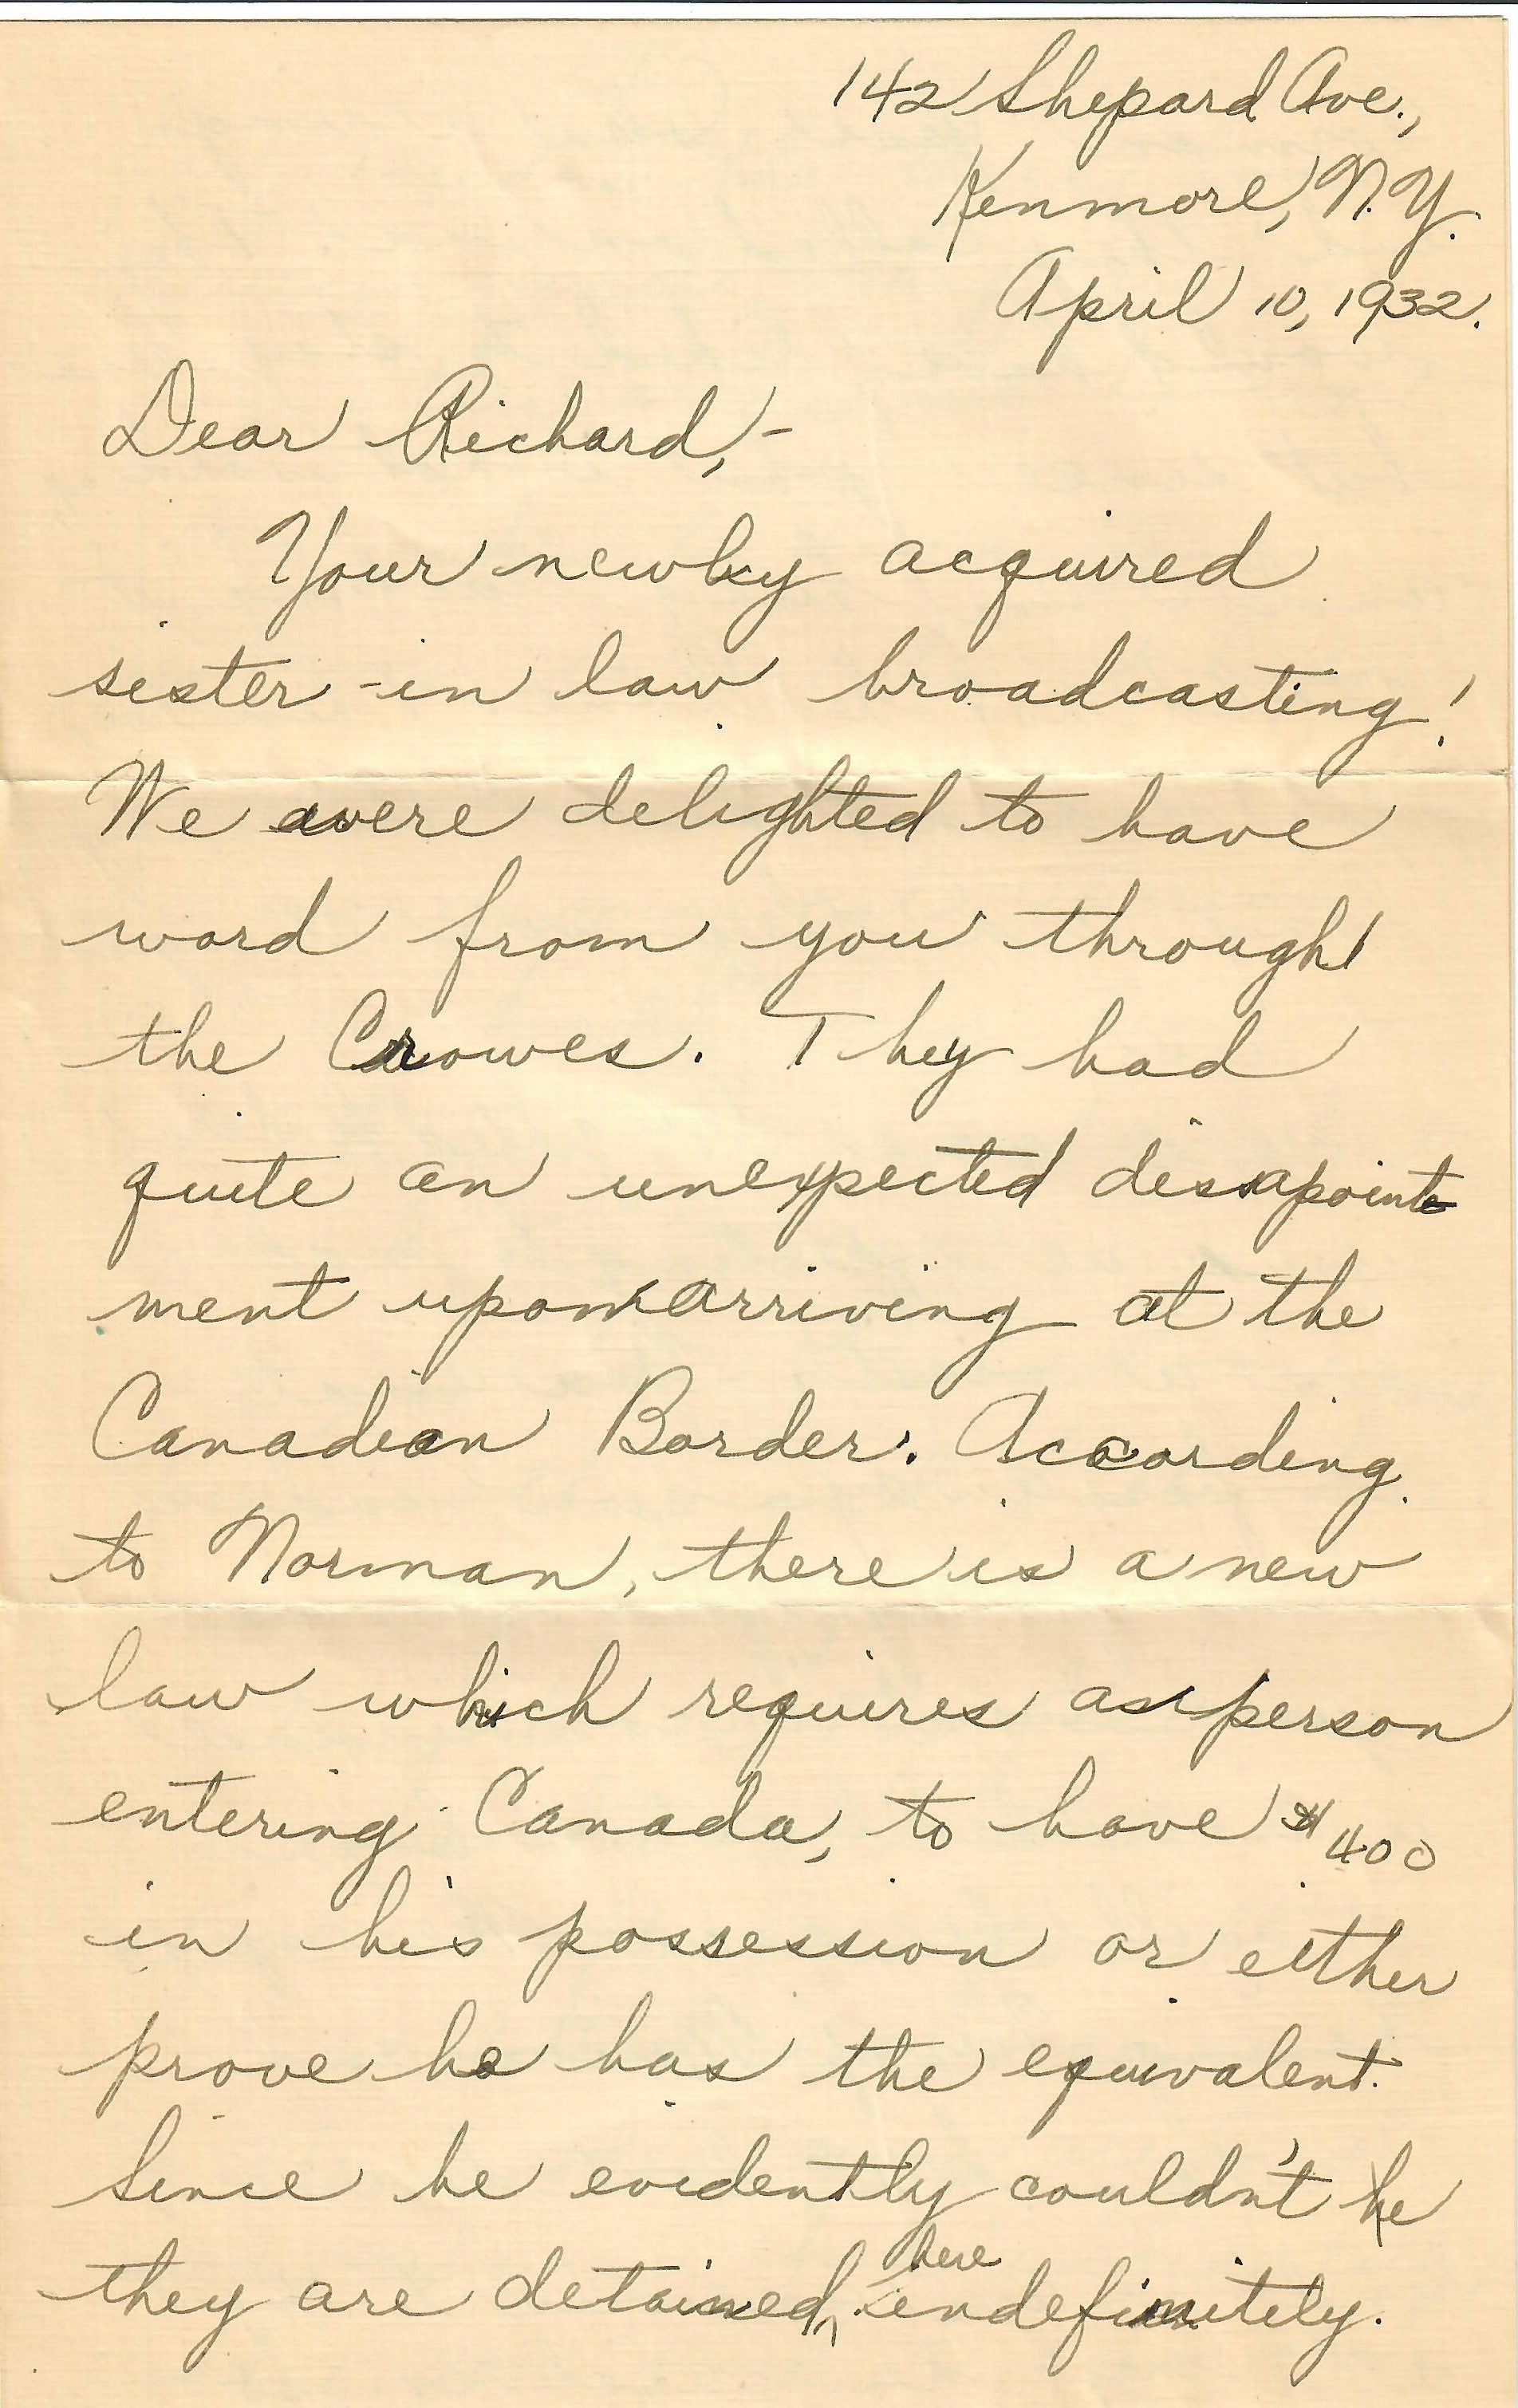 142 Shepard Ave.,
Kenmore, N.Y.
April 10, 1932.
Dear Richard,-
Your newly acquired
sister-in law broadcasting!
We were delighted to have
word from you through
the Crowes. They had
quite an unexpected disapoint
ment upon arriving at the
Canadian Border. According
to Norman, there is a new
law which requires a person
entering Canada, to have $400
in his possession or either
prove he has the equivalent.
Since he evidently couldn't
they are detained here indefinitely.